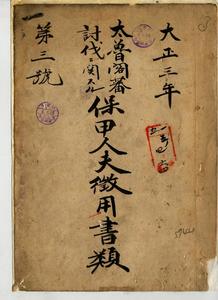 大正三年
太魯閣蕃
討伐ニ関スル
保甲人夫徴用書類
第三號